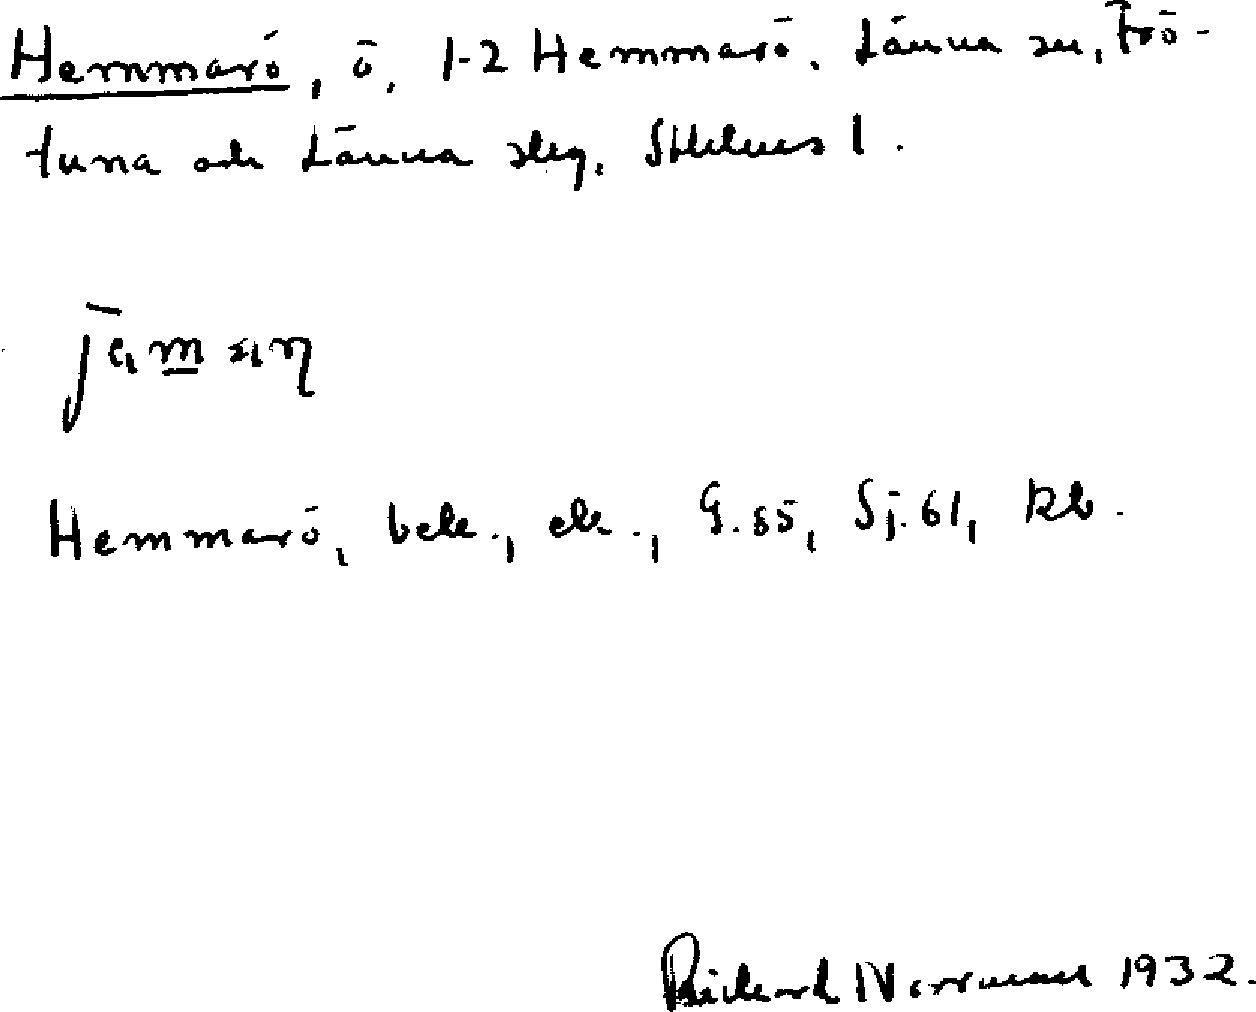 Hemmarö, ö, 1-2 Hemmarö. Länna sn, Frö-
tuna och Länna slg. Sthlms l.
Hemmarö, bek., ek., G. 85, Sj. 61, kb.
Rickard Norrman 1932.